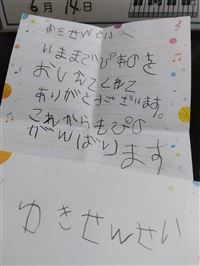 6月14日
ゆきせんせいへ
いままでぴあのを
おしえてくれて
ありがとうございます。
これからもぴの
がんばります
ゆきせんせい